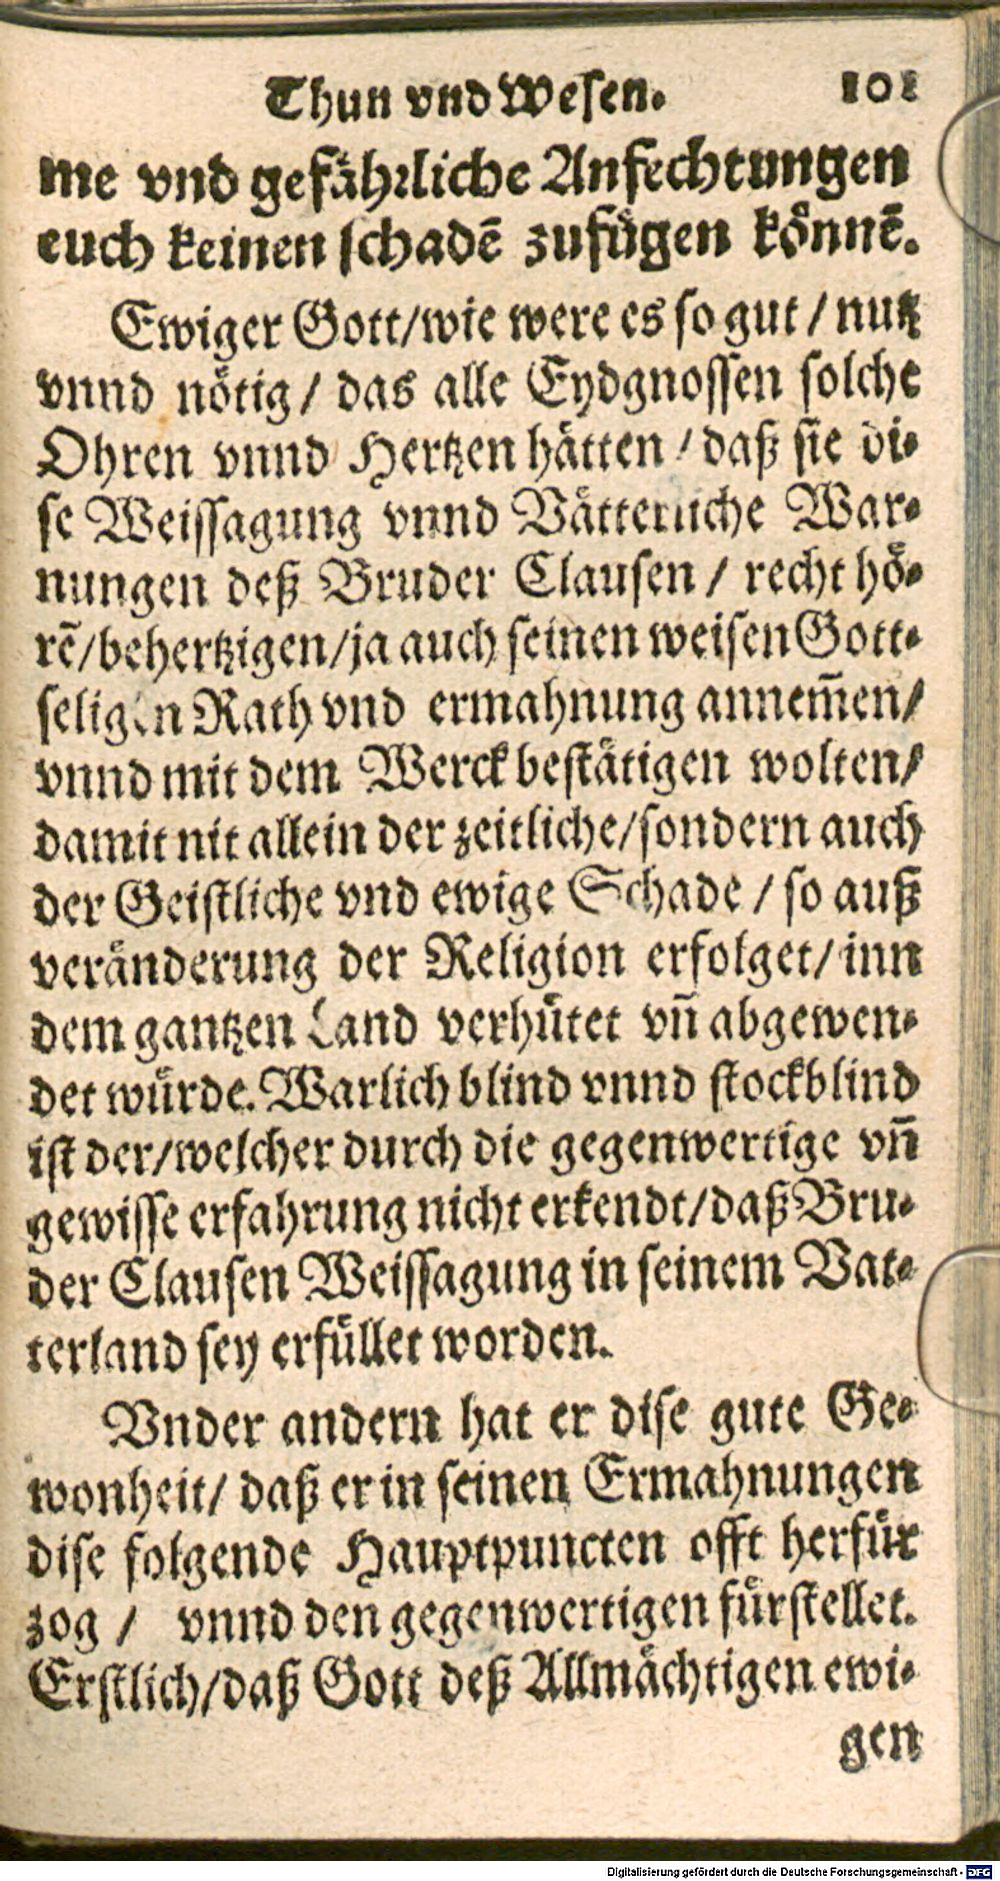 Thun vnd Wesen. 101
me vnd gefährliche Anfechtungen
euch keinen schadē zufügen könnē.
Ewiger Gott/wie were es so gut / nutz
vnnd nötig / das alle Eydgnossen solche
Ohren vnnd Hertzen hätten / daß sie di-
se Weissagung vnnd Vätterliche War-
nungen deß Bruder Clausen / recht hö-
rē/behertzigen/ja auch seinen weisen Gott-
seligen Rath vnd ermahnung annem̄en/
vnnd mit dem Werck bestätigen wolten/
damit nit allein der zeitliche/sondern auch
der Geistliche vnd ewige Schade / so auß
veränderung der Religion erfolget/inn
dem gantzen Land verhütet vn̄ abgewen-
det würde. Warlich blind vnnd stockblind
ist der/welcher durch die gegenwertige vn̄
gewisse erfahrung nicht erkendt/daß Bru-
der Clausen Weissagung in seinem Vat-
terland sey erfüllet worden.
Vnder andern hat er dise gute Ge-
wonheit/ daß er in seinen Ermahnungen
dise folgende Hauptpuncten offt herfür
zog / vnnd den gegenwertigen fürstellet.
Erstlich/daß Gott deß Allmächtigen ewi-
gen
Digitalisierung gefördert durch die Deutsche Forschungsgemeinschaft - DFG